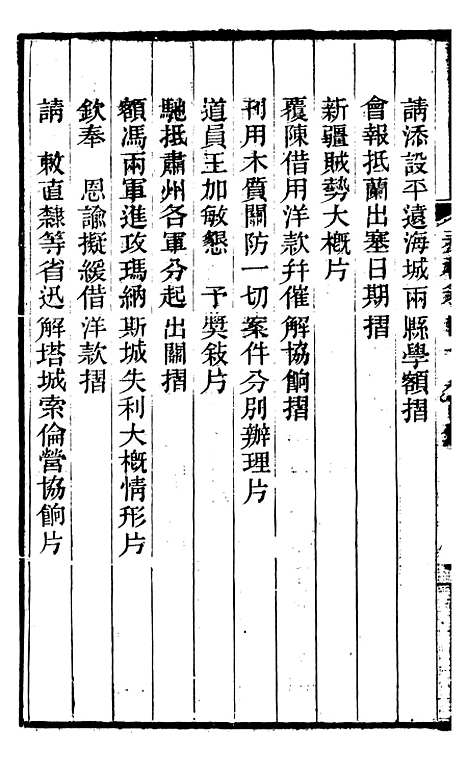 請添設平遠海城兩縣學額摺
會報抵蘭出塞日期摺
新疆賊勢大概片
覆陳借用洋款幷催解協餉摺
刊用木質關防一切案件分別辦理片
道員王加敏懇　予奬敘片
馳抵肅州各軍分起出關摺
額馮兩軍進攻瑪納斯城失利大概情形片
欽奉　恩諭擬緩借洋款摺
請　敕直隸等省迅解塔城索倫營協餉片